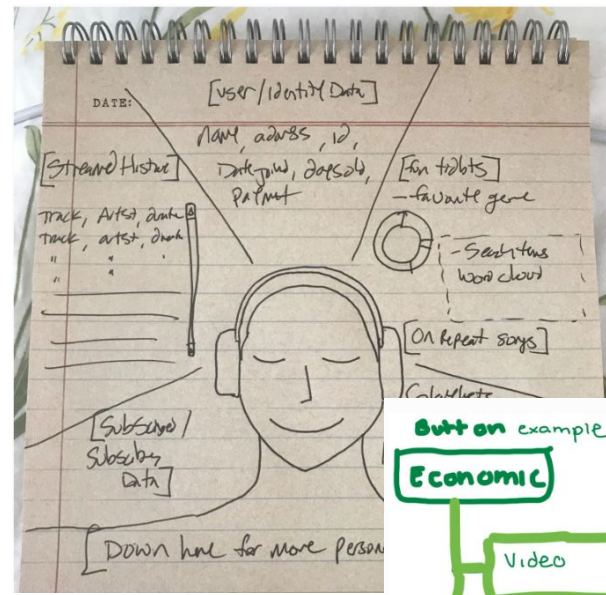 DATE:
[User/Identity Data]
name, address, id,
Date joined, days old,
Payment
[Streamed History]
Track, Artist, date
Track, artist, date
" " "
" "
[fun tidbits]
- favorite genre
- Search terms
word cloud
[On Repeat songs]
[Subscribed/
Subscribes
Data]
[Down here for more person
Button example
Economic
Video